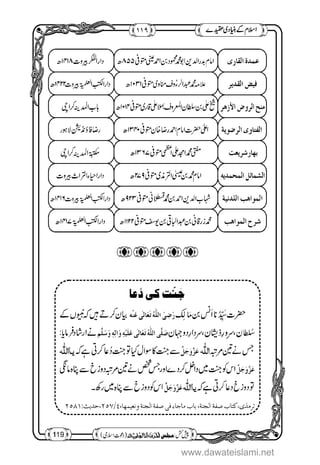 اسلام کے بنیادی عقیدے ۱۱۹
عمدة القاری امام بدر الدین ابو محمد محمود بن احمد عینی متوفی ۸۵۵ھ دار الفکر بیروت ۱۴۱۸ھ
فیض القدیر علامہ محمد عبد الرءوف مناوی متوفی ۱۰۳۱ھ دار الکتب العلمیة بیروت ۱۴۲۲ھ
منح الروض الأزهر شیخ علی بن سلطان المعروف بملا علی قاری متوفی ۱۰۱۴ھ باب المدینہ کراچی
الفتاوی الرضویة اعلی حضرت امام احمد رضا خان متوفی ۱۳۴۰ھ رضا فاؤنڈیشن لاہور
بہارشریعت مفتی محمد امجد علی اعظمی متوفی ۱۳۶۷ھ مکتبۃ المدینہ کراچی
الشمائل المحمدیه امام محمد بن عیسی الترمذی متوفی ۲۷۹ھ دار احیاء التراث بیروت
المواهب اللدنیة شہاب الدین احمد بن محمد قسطلانی متوفی ۹۲۳ھ دار الکتب العلمیة بیروت ۱۴۱۶ھ
شرح المواهب محمد زرقانی بن عبد الباقی بن یوسف متوفی ۱۱۲۲ھ دار الکتب العلمیة بیروت ۱۴۱۷ھ
جنّت کی دُعا
حضرتِ سیّدُنا اَنَس بن مالِک رَضِیَ اللّٰهُ تَعَالٰی عَنْهُ بیان کرتے ہیں کہ نبیوں کے
سُلطان، سرورِ ذیشان، سردارِ دو جہان صَلَّی اللّٰهُ تَعَالٰی عَلَیْهِ وَاٰلِهٖ وَسَلَّمَ نے ارشاد فرمایا:
جس نے تین مرتبہ اللّٰه عَزَّوَجَلَّ سے جنّت کا سوال کیا تو جنّت دُعا کرتی ہے کہ یااللّٰه
عَزَّوَجَلَّ اس کو جنّت میں داخل کردے اور جس شخص نے تین مرتبہ دوزخ سے پناہ مانگی
تو دوزخ دُعا کرتی ہے کہ یااللّٰه عَزَّوَجَلَّ اس کو دوزخ سے پناہ میں رکھ۔
(ترمذی، کتاب صفة الجنة، باب ماجاء فی صفة الجنة ونعیمها، ۲۵۷/۴، حدیث: ۲۵۸۱)
پیش کش: مجلس المدینۃ العلمیۃ (دعوتِ اسلامی) 119
www.dawateislami.net